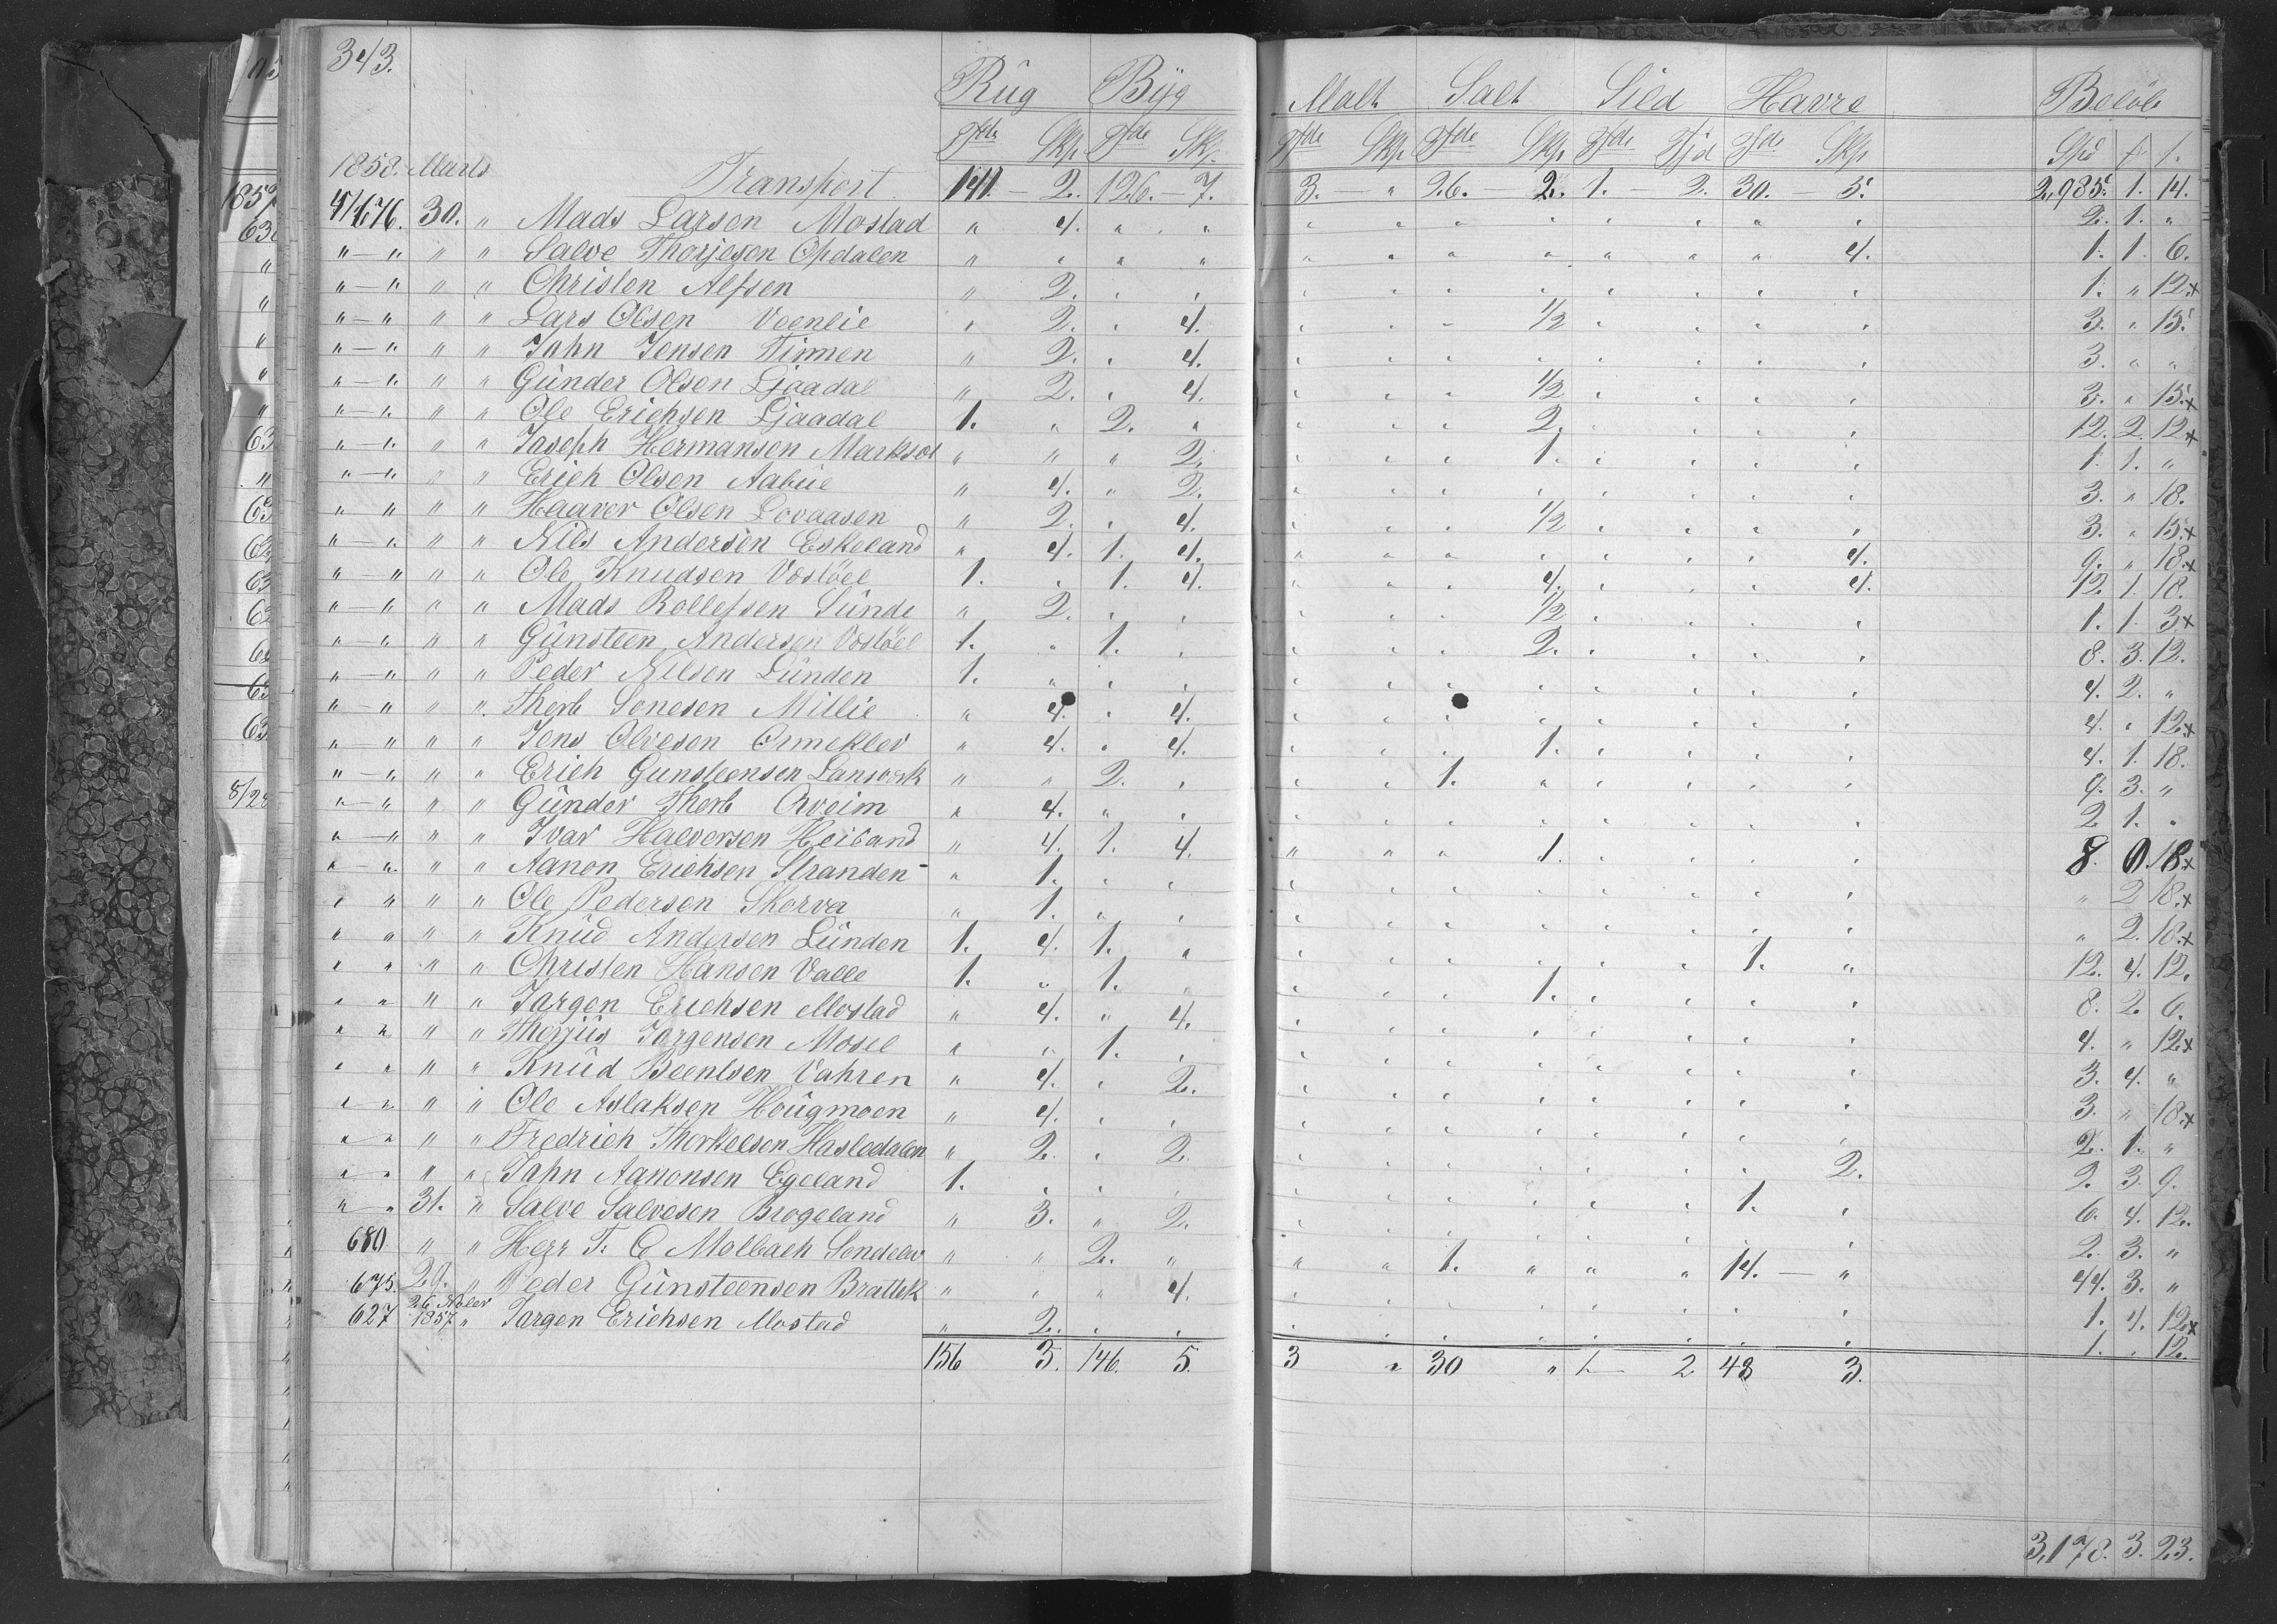 343.
Rüg Bÿg Malt Salt Sild Havre Beløb
Tde Skp. Tde Skp. Tde Skp. Tde Skp. Tde Fjd Tde Skp. Spd
1858. Marts Transport 141 - 2. 126. - 7. 3. - " 26. - 2. 1. - 2. 30. - 5. 2,985. 1. 14.
676. 30. " Mads Larsen Mostad " 4. " " 2. 1. "
" - " " " Salve Thorjesen Opdalen " " " " 4. 1. 1. 6.
" - " " " Christen Alfsen " 2. 1. " 12.x
" - " " " Lars Olsen Veenlie " 2. " 4. 1/2 3. " 15.
" - " " " Jahn Jensen Tinnen " 2. " 4. 3. " "
" - " " " Günder Olsen Ljaadal " 2. " 4. 1/2 3. " 15.x
" - " " " Ole Erichsen Ljaadal 1. " 2. " 2. 12. 2. 12.x
" - " " " Joseph Hermansen " " " 2. 1. 1. 1. "
" - " " " Erich Olsen Aabüe " 4. " 2. 3. " 18.
" " " " Haaver Olsen Lovaasen " 2. " 4. 1/2 3. " 15.x
" - " " " Nils Andersen Eskeland " 4. 1. 4. 4. 9. " 18.x
" - " " " Ole Knudsen Vosløel 1. " 1. 4. 4. 4. 12. 1. 18.
" - " " " Mads Rollefsen Sünde " 2. 1/2 1. 1. 3x
" - " " " Günsteen Andersen Vosløel 1. " 1. 2. 8. 3. 12.
" - " " " Peder Nilsen Lünden 1. 4. 2. "
" - " " " Therb Sonesen Millie " 4. " 4. 4. " 12.x
" - " " " Jens Olvesen Ormeklev " 4. " 4. 1. 4. 1. 18.
" - " " " Erich Gunsteensen " " 2. 1. " 9. 3. "
" - " " " Günder Therb Qveim " 4. " 2. 1. "
" - " " " Ivar Halversen " 4. 1. 4. 1. 8. 0. 18x
" - " " " Aanon Erichsen Stranden " 1. " 2 18.x
" " " " Ole Pedersen Skorva " 1. " 2. 18.x
" " " " Knüd Andersen Lünden 1. 4. 1. " 1. " 12. 4. 12.
" " " " Christen Hansen Valle 1. " 1. 1. 8. 2. 6.
" " " " Jargen Erichsen Mostad " 4. " 4. 4. " 12x
" " " " Therjüs Jørgensen Mosel " " 1. 3. 4. "
" " " " Knüd Beentsen Vahren " 4. " 2. 3. " 18.x
" " " " Ole Aslaksen Hoügmoen " 4. 2. 1. "
" " " " Fredrich Thorkelsen Hasledalen " 2. " 2. 2. 2. 3. 9.
" " " " Jahn Aanonsen Egeland 1. 1. 6. 4. 12.
" " 31. " Salve Salvesen Brogeland " 3. " 2. 2. 3. "
680 " " Herr T. C Molbach Sondelav " " 2. " 1. " 14. - " 44. 3. "
675. 29. " Peder Günsteensen " " " 4. 1. 4. 12x
627 26 Nober 1857 " Jargen Erichsen Mostad " 2. 1. " 12.
156 3. 146. 5. 3 " 30 " 1 - 2 48 3.
3,178. 3. 23.